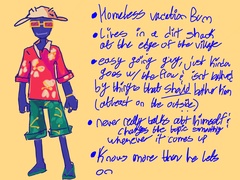 • Homeless vacation Bum
• Lives in a dirt shack
at the edge of the village
• easy going guy, just kinda
goes w/ the flow/ isn't bothered
by things that should bother him
(atleast on the outside)
• never really talks abt himself/
changes the topic smoothly
whenever it comes up
• Knows more than he lets
on